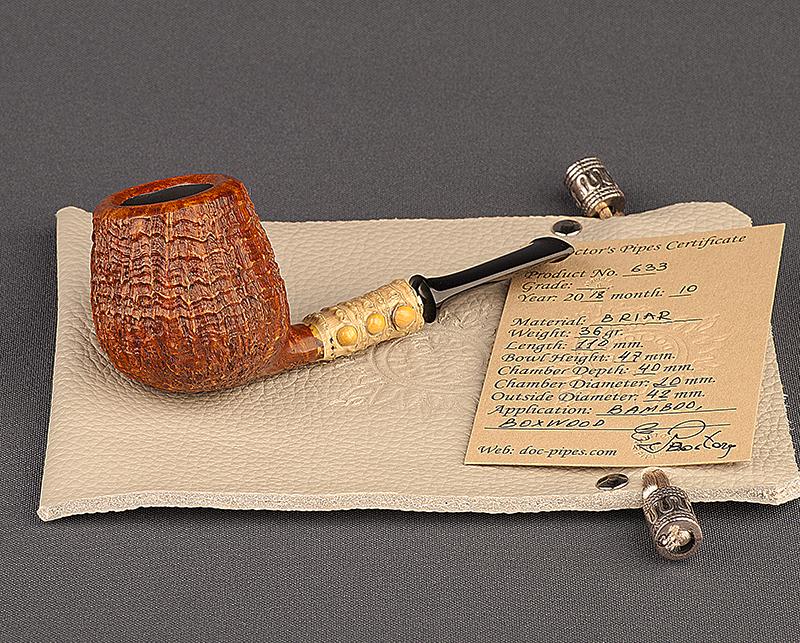 ctor's Pipes Certificate
Product No. 633
Grade:
Year: 20 18 month: 10
Material: BRIAR
Weight: 36 gr.
Length: 112 mm.
Bowl Height: 47 mm.
Chamber Depth: 40 mm.
Chamber Diameter: 20 mm.
Outside Diameter: 42 mm.
Application: BAMBOO,
BOXWOOD
Web: doc-pipes.com